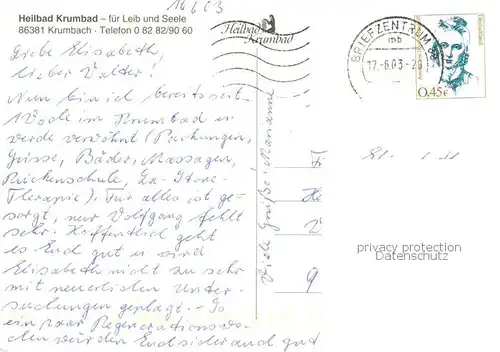 16 6 03
Heilbad Krumbad – für Leib und Seele
86381 Krumbach · Telefon 0 82 82/90 60
Heilbad
Krumbad
BRIEFZENTRUM 86
mb
17.-6.03-20
Deutschland
0,45€
Liebe Elisabeth,
lieber Walter!
Nun bin ich bereits seit
Woche im Krumbad u
werde verwöhnt (Packungen,
Güsse, Bäder, Massagen,
Rückenschule, La-Stone-
Therapie). Für alles ist ge-
sorgt, nur Wolfgang fehlt
sehr. Hoffentlich geht
es Euch gut u wird
Elisabeth nicht zu sehr
mit neuerlichen Unter-
suchungen geplagt. – So
ein paar Regenerationswo-
chen würden Euch sicher auch gut
Viele Grüße: Marianne
privacy protection
Datenschutz